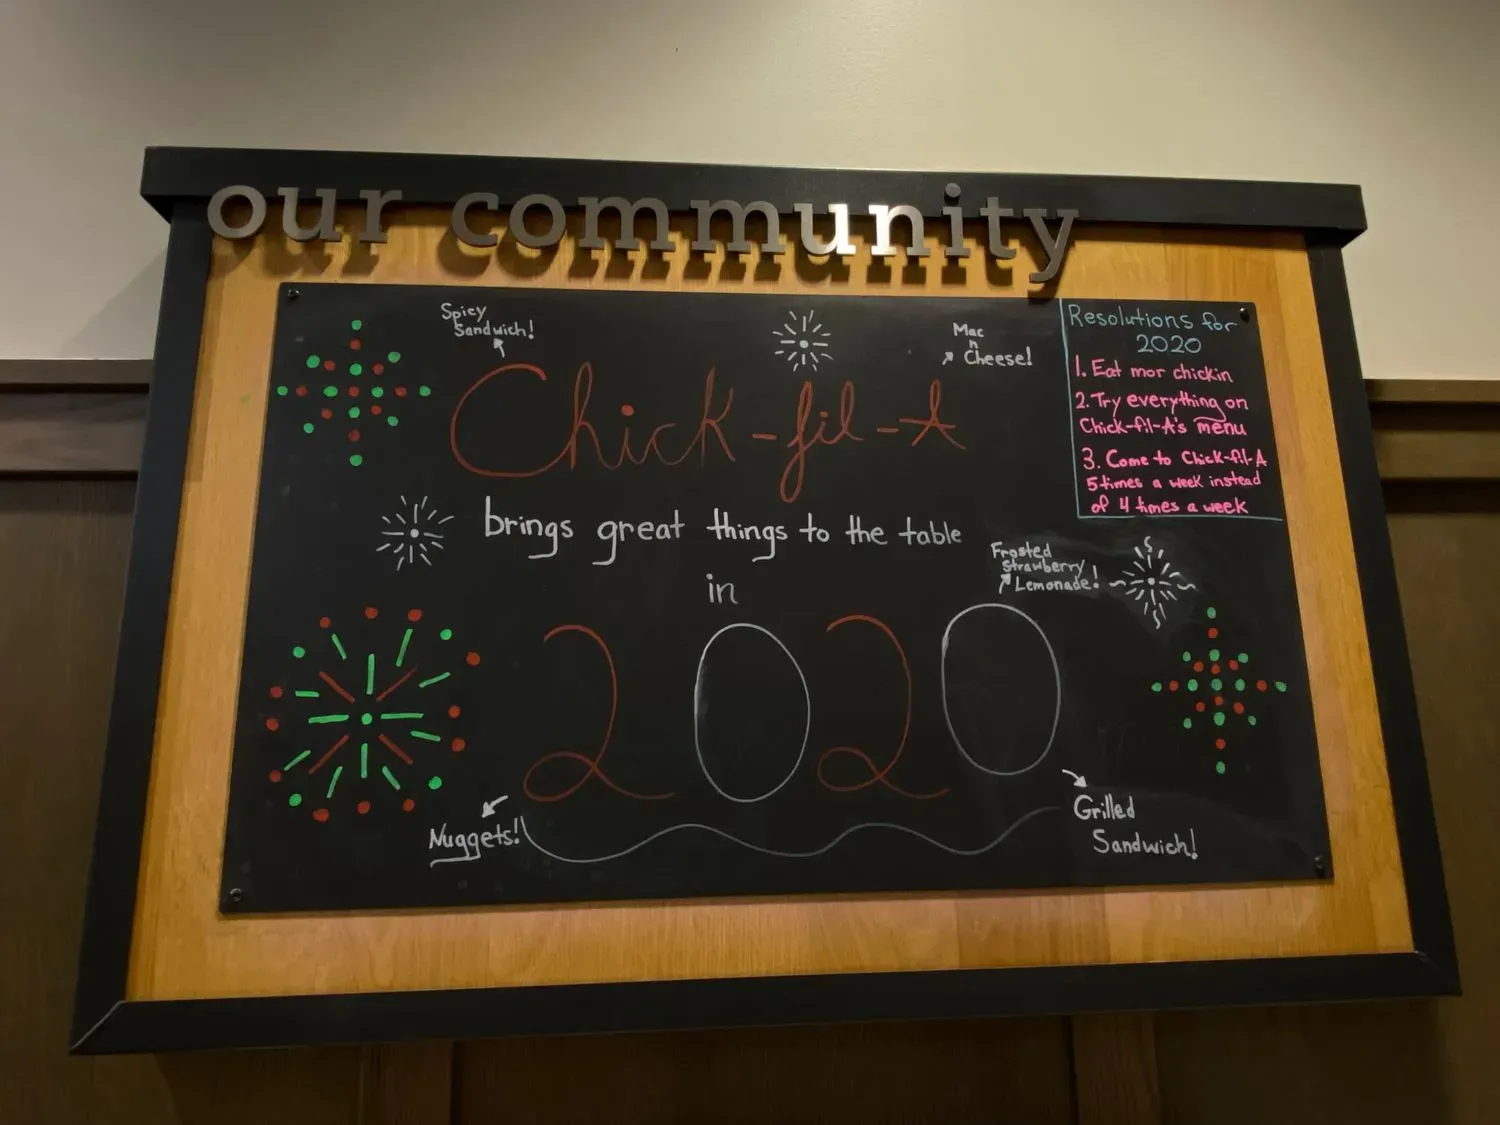 our community
Spicy
Sandwich!
Mac
n
Cheese!
Chick-fil-A
brings great things to the table
in
2020
Resolutions for
2020
1. Eat mor chickin
2. Try everything on
Chick-fil-A's menu
3. Come to Chick-fil-A
5 times a week instead
of 4 times a week
Frosted
strawberry
Lemonade!
Nuggets!
Grilled
Sandwich!